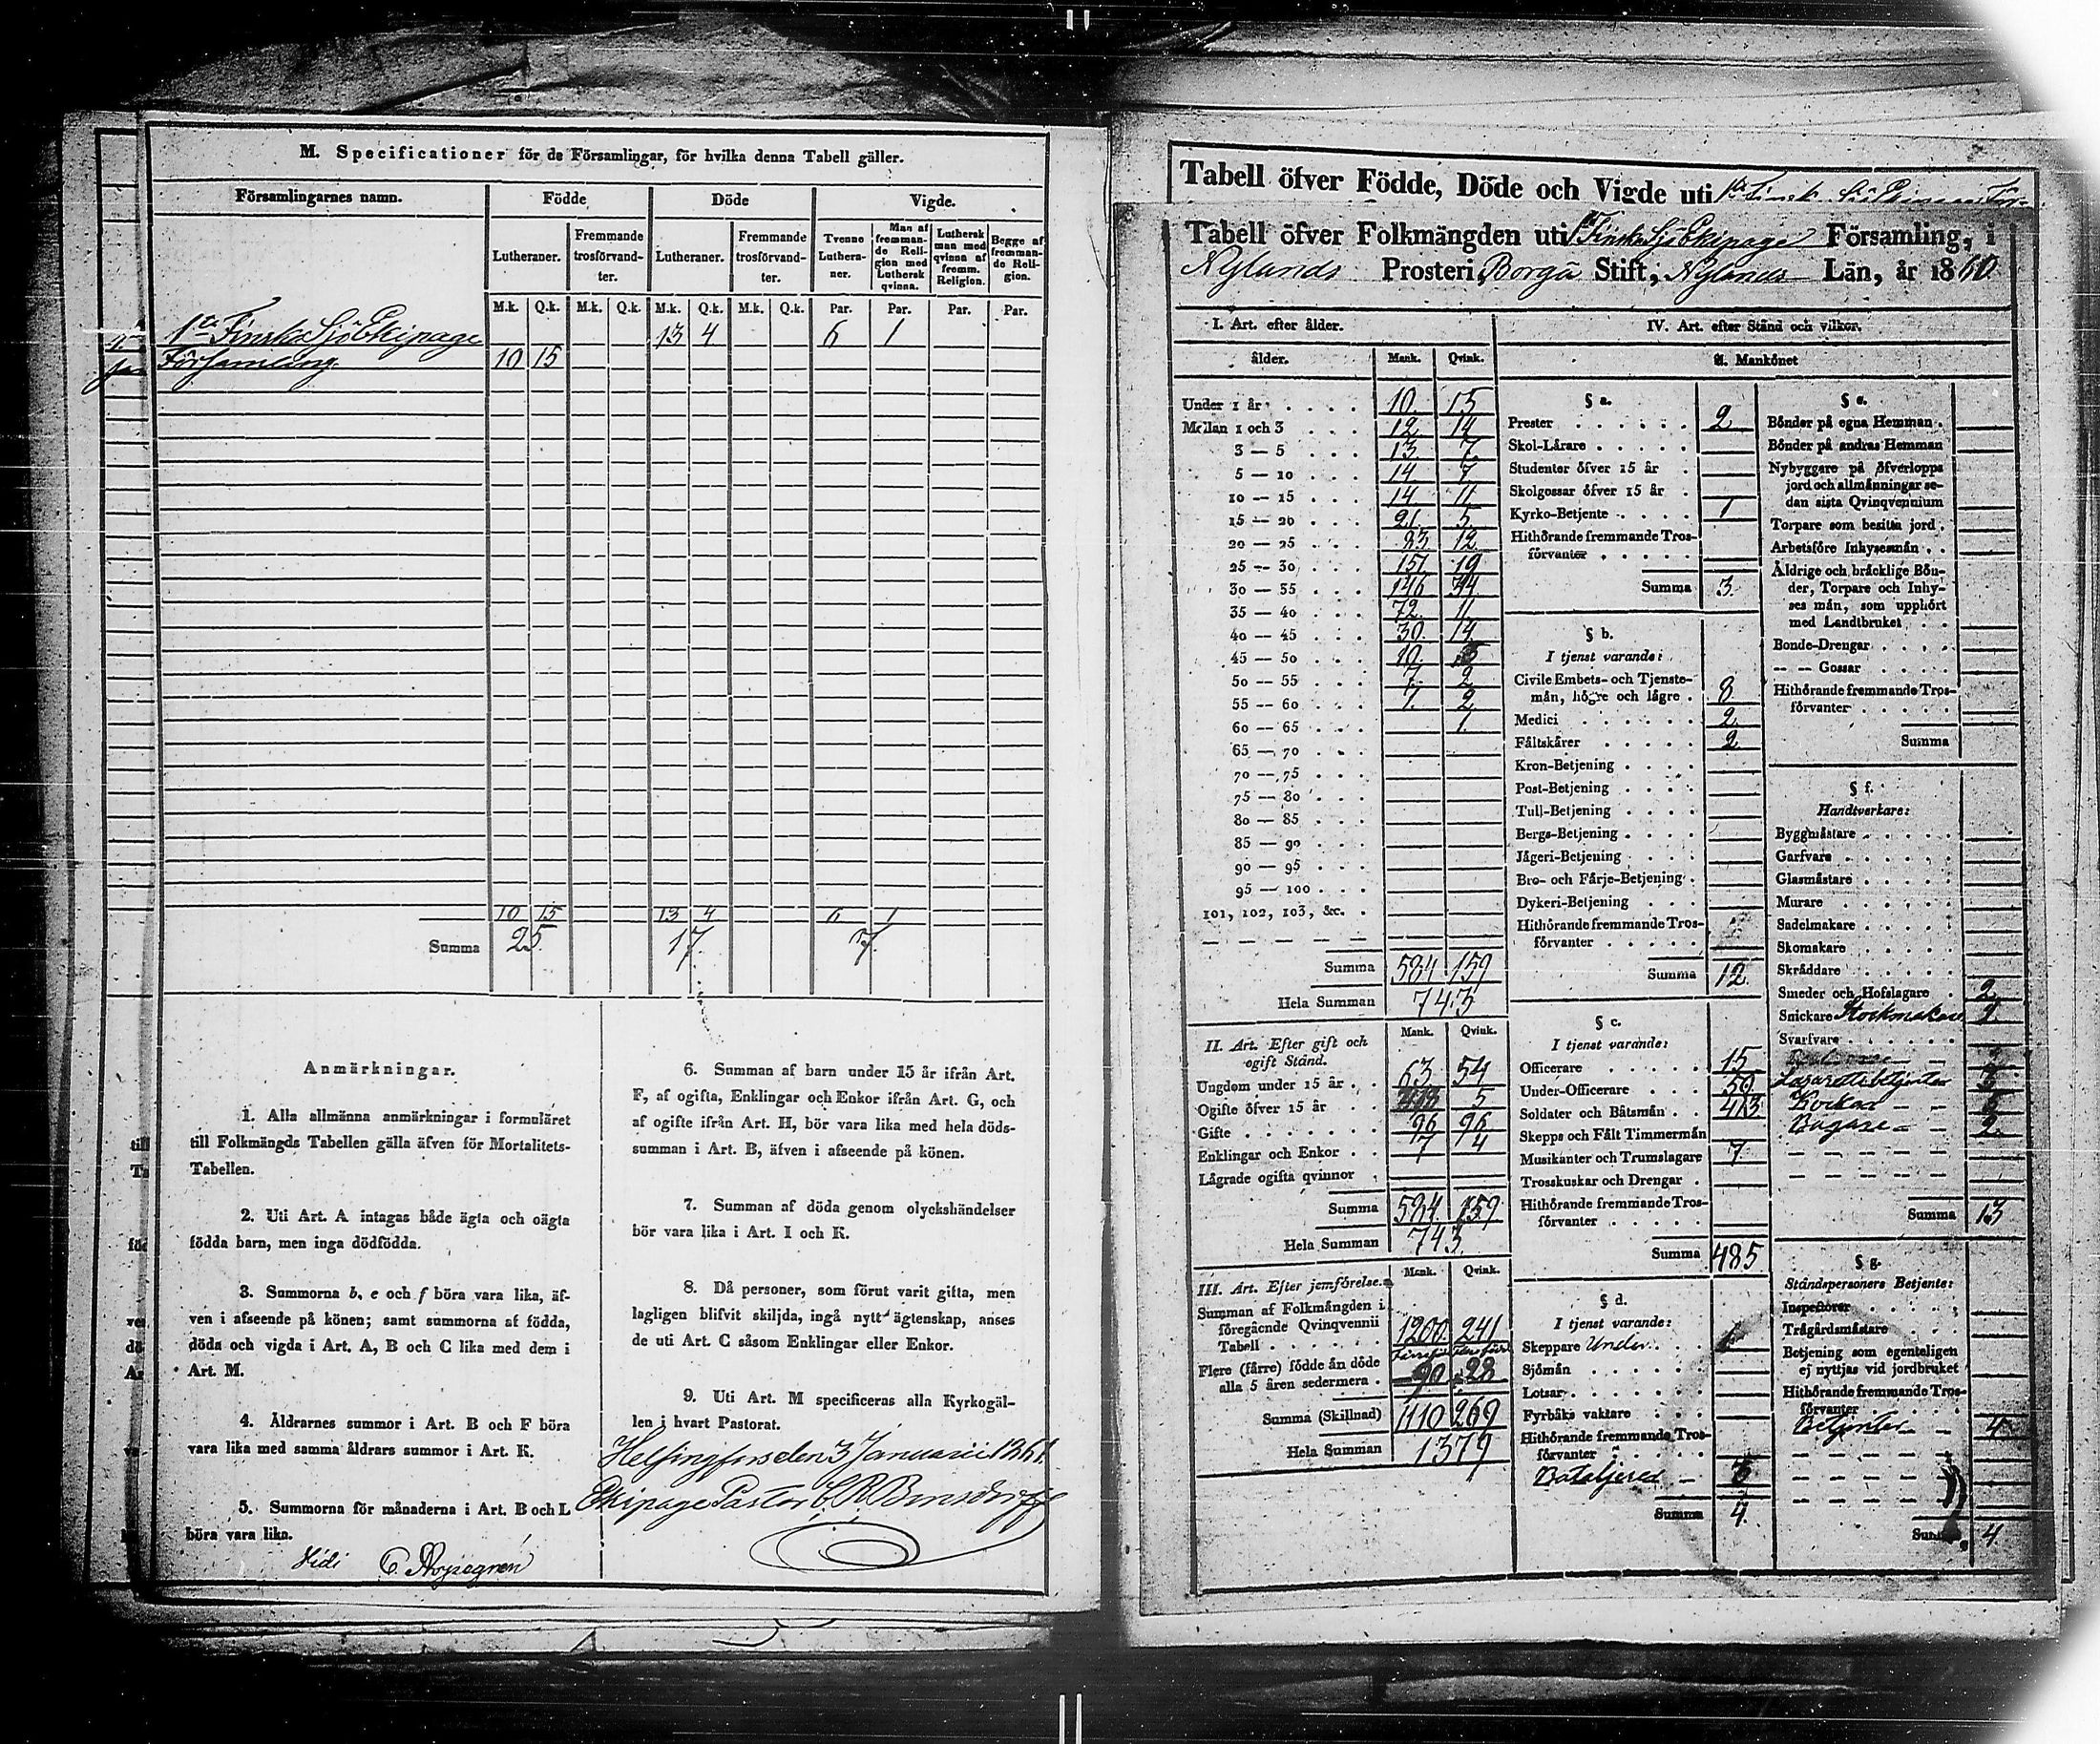 M. Specificationer för de Församlingar, för hvilka denna Tabell gäller.
Församlingarnes namn. Födde Döde Vigde.
Lutheraner. Fremmande trosförvandter. Lutheraner. Fremmande trosförvandter. Tvenne Lutheraner. Man af fremmande Religion med Luthersk qvinna. Luthersk man med qvinna af fremm. Religion. Begge af fremmande Religion.
M.k. Q.k. M.k. Q.k. M.k. Q.k. M.k. Q.k. Par. Par. Par. Par.
1sta Finska Sjö Ekipage 13 4 6 1
Församling. 10 15
10 15 13 4 6 1
Summa 25. 17. 7.
Anmärkningar.
1. Alla allmänna anmärkningar i formuläret
till Folkmängds Tabellen gälla äfven för Mortalitets-
Tabellen.
2. Uti Art. A intagas både ägta och oägta
födda barn, men inga dödfödda.
3. Summorna b, e och f böra vara lika, äf-
ven i afseende på könen; samt summorna af födda,
döda och vigda i Art. A, B och C lika med dem i
Art. M.
4. Åldrarnes summor i Art. B och F böra
vara lika med samma åldrars summor i Art. K.
5. Summorna för månaderna i Art. B och L
böra vara lika.
Vidi
6. Summan af barn under 15 år ifrån Art.
F, af ogifta, Enklingar och Enkor ifrån Art. G, och
af ogifte ifrån Art. H, bör vara lika med hela döds-
summan i Art. B, äfven i afseende på könen.
7. Summan af döda genom olyckshändelser
bör vara lika i Art. I och K.
8. Då personer, som förut varit gifta, men
lagligen blifvit skiljda, ingå nytt ägtenskap, anses
de uti Art. C såsom Enklingar eller Enkor.
9. Uti Art. M specificeras alla Kyrkogäl-
len i hvart Pastorat.
Helsingfors den 3 Januarii 1861.
Ekipage Pastor
Tabell öfver Födde, Döde och Vigde uti 1sta Finska Sjö Ekipage För-
Tabell öfver Folkmängden uti 1 Finska Sjö Ekipage Församling, i
Nylands Prosteri, Borgå Stift, Nylands Län, år 1860
I. Art. efter ålder.
ålder. Mank. Qvink.
Under 1 år 10. 15
Mellan 1 och 3 12. 14
3 — 5 13. 7.
5 — 10 14 7
10 — 15 14 11
15 — 20 21. 5.
20 — 25 83 12.
25 — 30 151 19
30 — 35 146 34
35 — 40 72. 11.
40 — 45 30. 14
45 — 50 10.
50 — 55 7. 2
55 — 60 1. 2
60 — 65 1.
65 — 70
70 — 75
75 — 80
80 — 85
85 — 90
90 — 95
95 — 100
101, 102, 103, &c.
Summa 584 159
Hela Summan 743
II. Art. Efter gift och
ogift Stånd. Mank. Qvink.
Ungdom under 15 år 63 54
Ogifte öfver 15 år 5
Gifte 96 96
Enklingar och Enkor 7 4
Lägrade ogifta qvinnor
Summa 584 159.
Hela Summan 743.
III. Art. Efter jemförelse. Mank. Qvink.
Summan af Folkmängden i
föregående Qvinqvennii
Tabell 1200. 241
Flere (färre) födde än döde
alla 5 åren sedermera 90 28
Summa (Skillnad) 1110 269
Hela Summan 1379
IV. Art. efter Stånd och vilkor.
A. Mankönet
§ a.
Prester 2
Skol-Lärare
Studenter öfver 15 år
Skolgossar öfver 15 år
Kyrko-Betjente 1
Hithörande fremmande Tros-
förvanter
Summa 3
§ b.
I tjenst varande:
Civile Embets- och Tjenste-
män, högre och lägre 8
Medici 2
Fältskärer 2
Kron-Betjening
Post-Betjening
Tull-Betjening
Bergs-Betjening
Jägeri-Betjening
Bro- och Färje-Betjening
Dykeri-Betjening
Hithörande fremmande Tros-
förvanter
Summa 12.
§ c.
I tjenst varande:
Officerare 15
Under-Officerare 50
Soldater och Båtsmän 413
Skepps och Fält Timmermän
Musikanter och Trumslagare 7
Trosskuskar och Drengar
Hithörande fremmande Tros-
förvanter
Summa 485
§ d.
I tjenst varande:
Skeppare Under
Sjömän
Lotsar
Fyrbåks vaktare
Hithörande fremmande Tros-
förvanter
Summa 4
§ e.
Bönder på egna Hemman
Bönder på andras Hemman
Nybyggare på öfverlopps
jord och allmänningar se-
dan sista Qvinqvennium
Torpare som besitta jord
Arbetsföre Inhysesmän
Åldrige och bräcklige Bön-
der, Torpare och Inhy-
ses män, som upphört
med Landtbruket
Bonde-Drengar
— — Gossar
Hithörande fremmande Tros-
förvanter
Summa
§ f.
Handtverkare:
Byggmästare
Garfvare
Glasmästare
Murare
Sadelmakare
Skomakare
Skräddare
Smeder och Hofslagare 2
Snickare Stockmakare 1.
Svarfvare
Lazarettsbetjenter
Kockar
Bagare 2.
Summa 13
§ g.
Ståndspersoners Betjente:
Inspektorer
Trägårdsmästare
Betjening som egenteligen
ej nyttjas vid jordbruket
Hithörande fremmande Tros-
förvanter
Betjenter 4
Summa 4